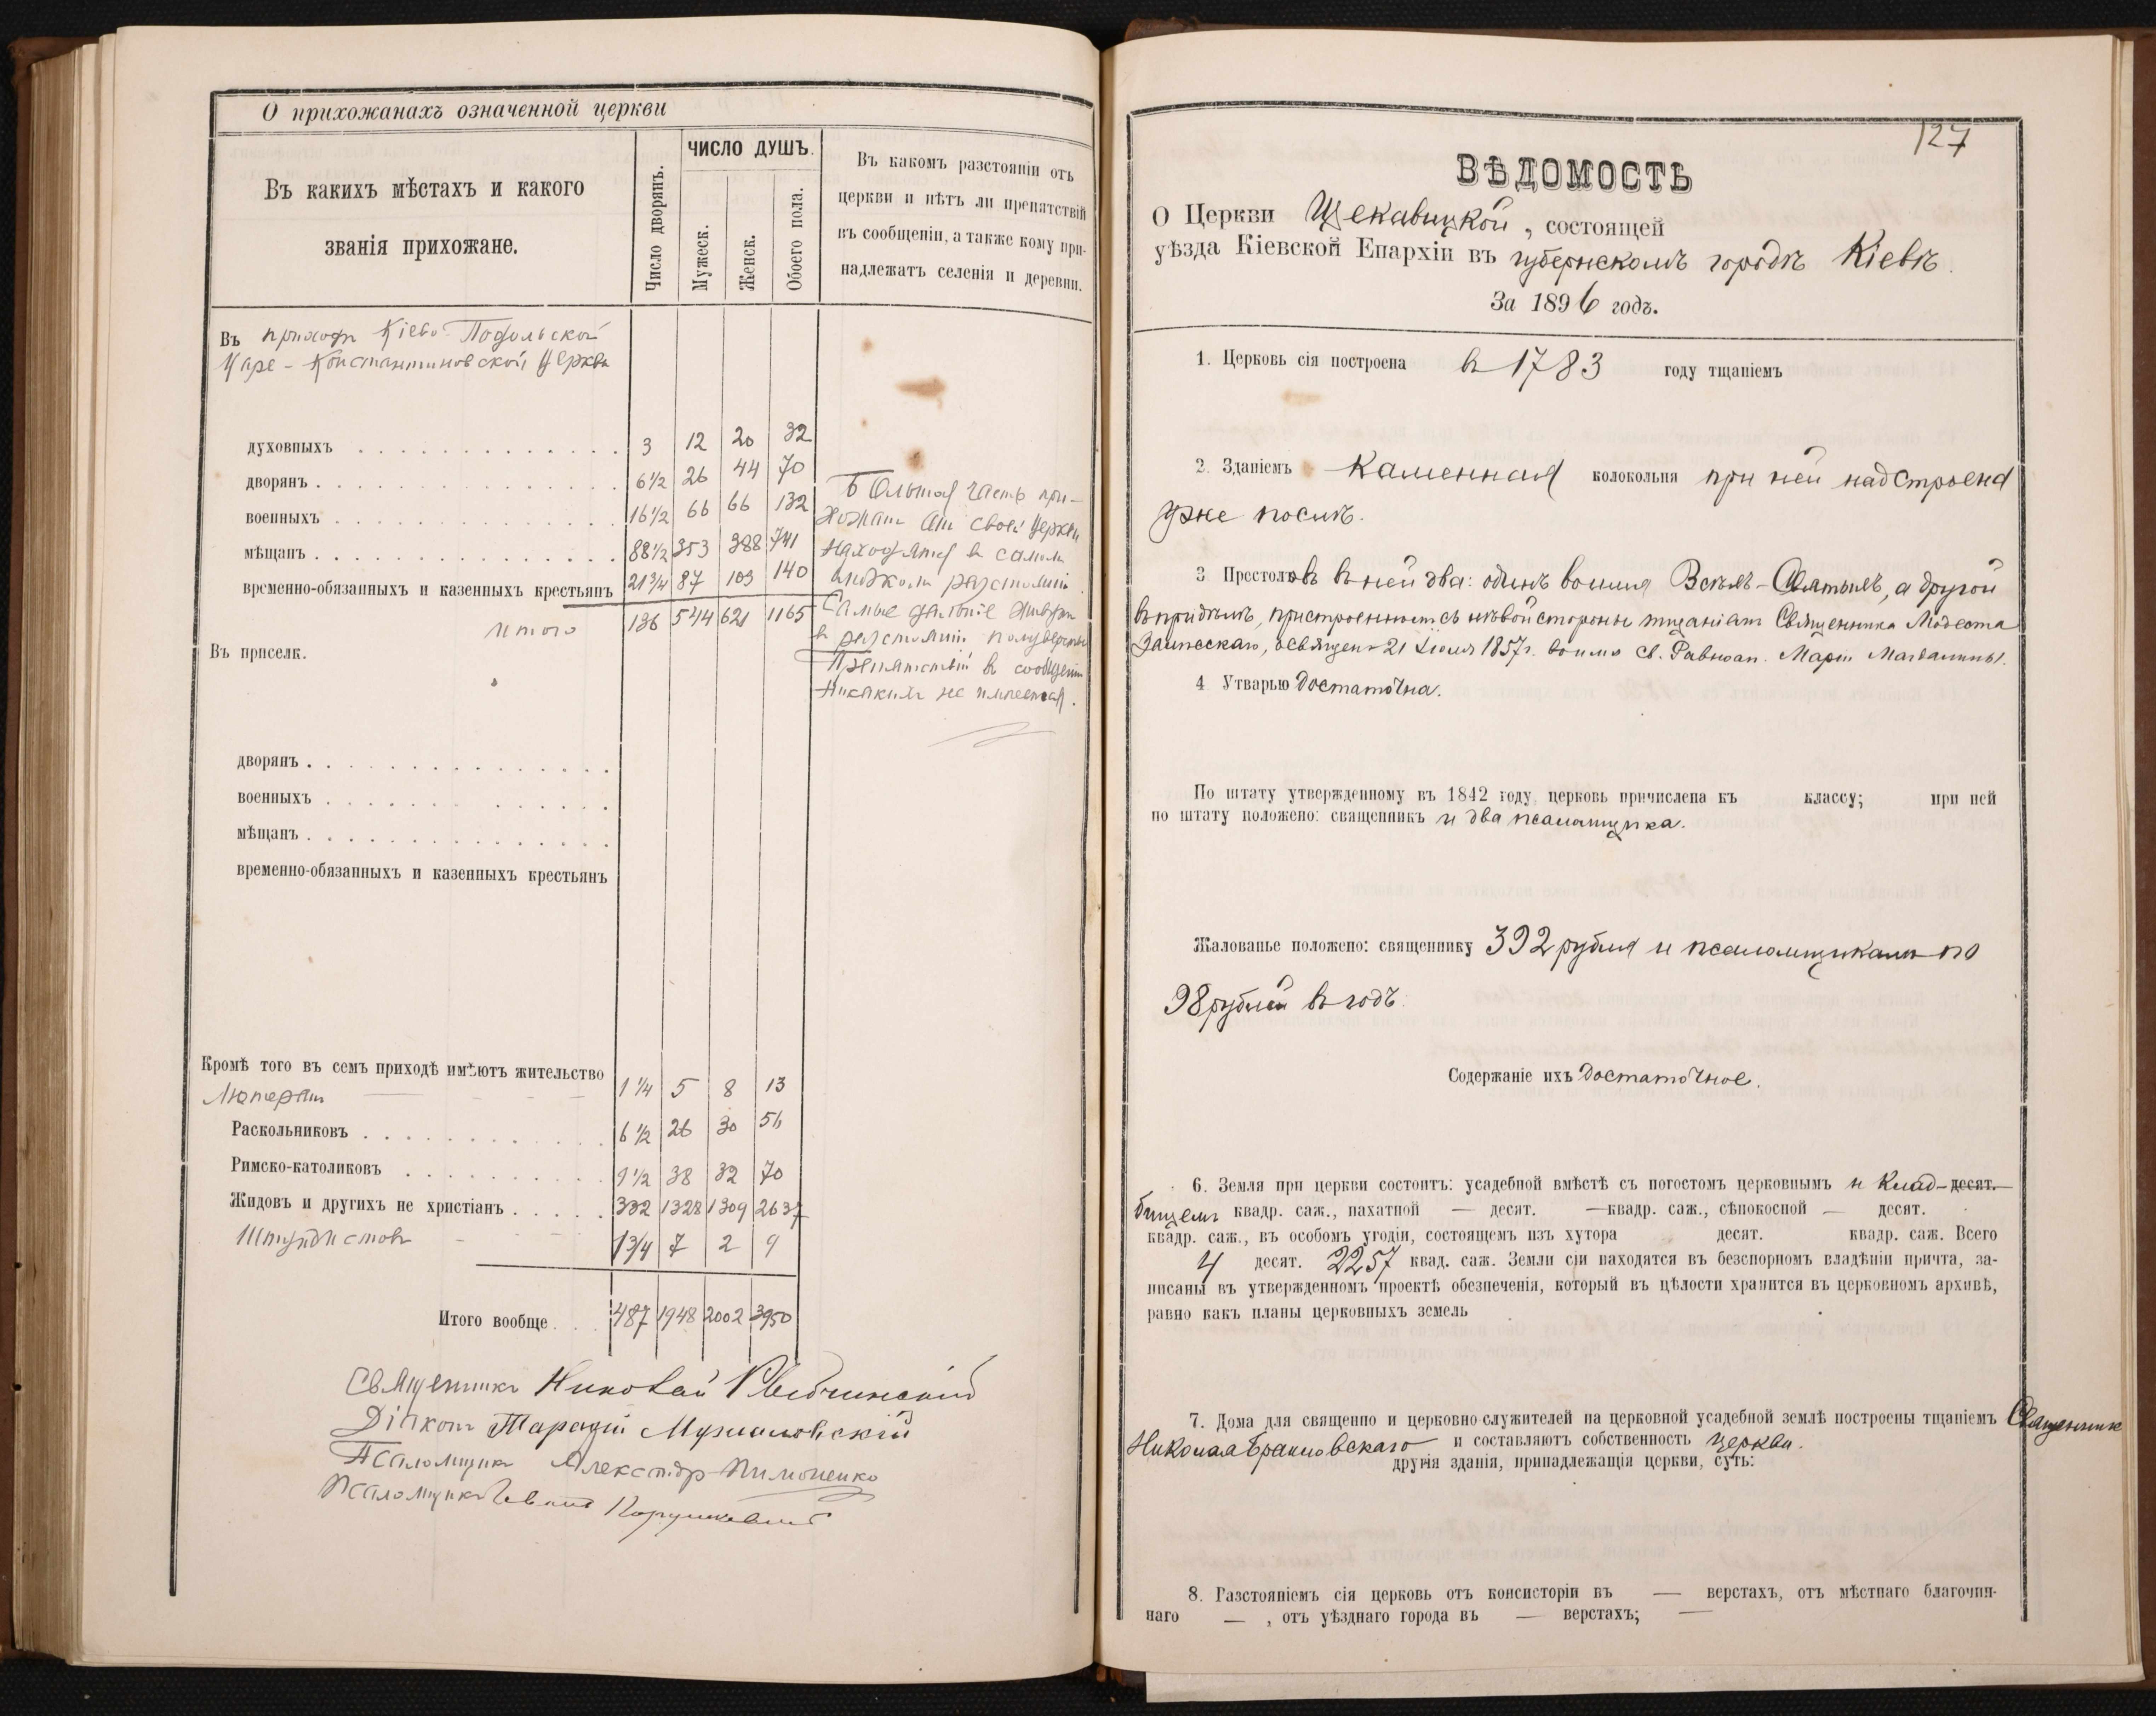 О прихожанахъ означенной церкви
Въ какихъ мѣстахъ и какого
званія прихожане.
Число дворянъ.
ЧИСЛО ДУШЪ.
Мужеск.
Женск.
Обоего пола.
Въ какомъ разстояніи отъ
церкви и нѣтъ ли препятствій
въ сообщеніи, а также кому при-
надлежатъ селенія и деревни.
Въ приходѣ Кіево-Подольской
Царе-Константиновской Церкви
духовныхъ 3 12 20 32
дворянъ 6 1/2 26 44 70
военныхъ 16 1/2 66 66 132
мѣщанъ 88 1/2 353 388 741
временно-обязанныхъ и казенныхъ крестьянъ 21 3/4 87 103 140
Итого 136 544 621 1165
Большая часть при-
хожанъ отъ своей Церкви
находятся въ самомъ
близкомъ разстояніи.
Самые дальніе живутъ
въ разстояніи полуверсты
Препятствій въ сообщеніи
никакихъ не имѣется.
Въ приселк.
дворянъ
военныхъ
мѣщанъ
временно-обязанныхъ и казенныхъ крестьянъ
Кромѣ того въ семъ приходѣ имѣютъ жительство
Лютеранъ 1 1/4 5 8 13
Раскольниковъ 6 1/2 26 30 56
Римско-католиковъ 9 1/2 38 32 70
Жидовъ и другихъ не христіанъ 332 1328 1309 2637
Штундистовъ 1 3/4 7 2 9
Итого вообще 487 1948 2002 3950
Священникъ Николай
Діаконъ Тарасій
Псаломщикъ Александръ Пимоненко
Псаломщикъ
127
ВѢДОМОСТЬ
О Церкви Щекавицкой, состоящей
уѣзда Кіевской Епархіи въ губернскомъ городѣ Кіевѣ.
За 1896 годъ.
1. Церковь сія построена въ 1783 году тщаніемъ
2. Зданіемъ каменная колокольня при ней надстроена
уже послѣ.
3 Престоловъ въ ней два: одинъ во имя Всѣхъ-Святыхъ, а другой
въ придѣлѣ, пристроенномъ съ лѣвой стороны тщаніемъ Священника Модеста
освященъ 21 Іюля 1857 г. во имя св. Равноап. Маріи Магдалины.
4 Утварью достаточна.
По штату утвержденному въ 1842 году, церковь причислена къ классу; при ней
по штату положено: священникъ и два псаломщика.
Жалованье положено: священнику 392 рубля и псаломщикамъ по
98 рублей въ годъ.
Содержаніе ихъ достаточное.
6. Земля при церкви состоитъ: усадебной вмѣстѣ съ погостомъ церковнымъ и клад- десят.
бищемъ квадр. саж., пахатной — десят. — квадр. саж., сѣнокосной — десят.
квадр. саж., въ особомъ угодіи, состоящемъ изъ хутора десят. квадр. саж. Всего
4 десят. 2257 квад. саж. Земли сіи находятся въ безспорномъ владѣніи причта, за-
писаны въ утвержденномъ проектѣ обезпеченія, который въ цѣлости хранится въ церковномъ архивѣ,
равно какъ планы церковныхъ земель
7. Дома для священно и церковно-служителей на церковной усадебной землѣ построены тщаніемъ Священник
Николая Брановскаго и составляютъ собственность церкви.
другія зданія, принадлежащія церкви, суть:
8. Разстояніемъ сія церковь отъ консисторіи въ — верстахъ, отъ мѣстнаго благочин-
наго — , отъ уѣзднаго города въ — верстахъ; —